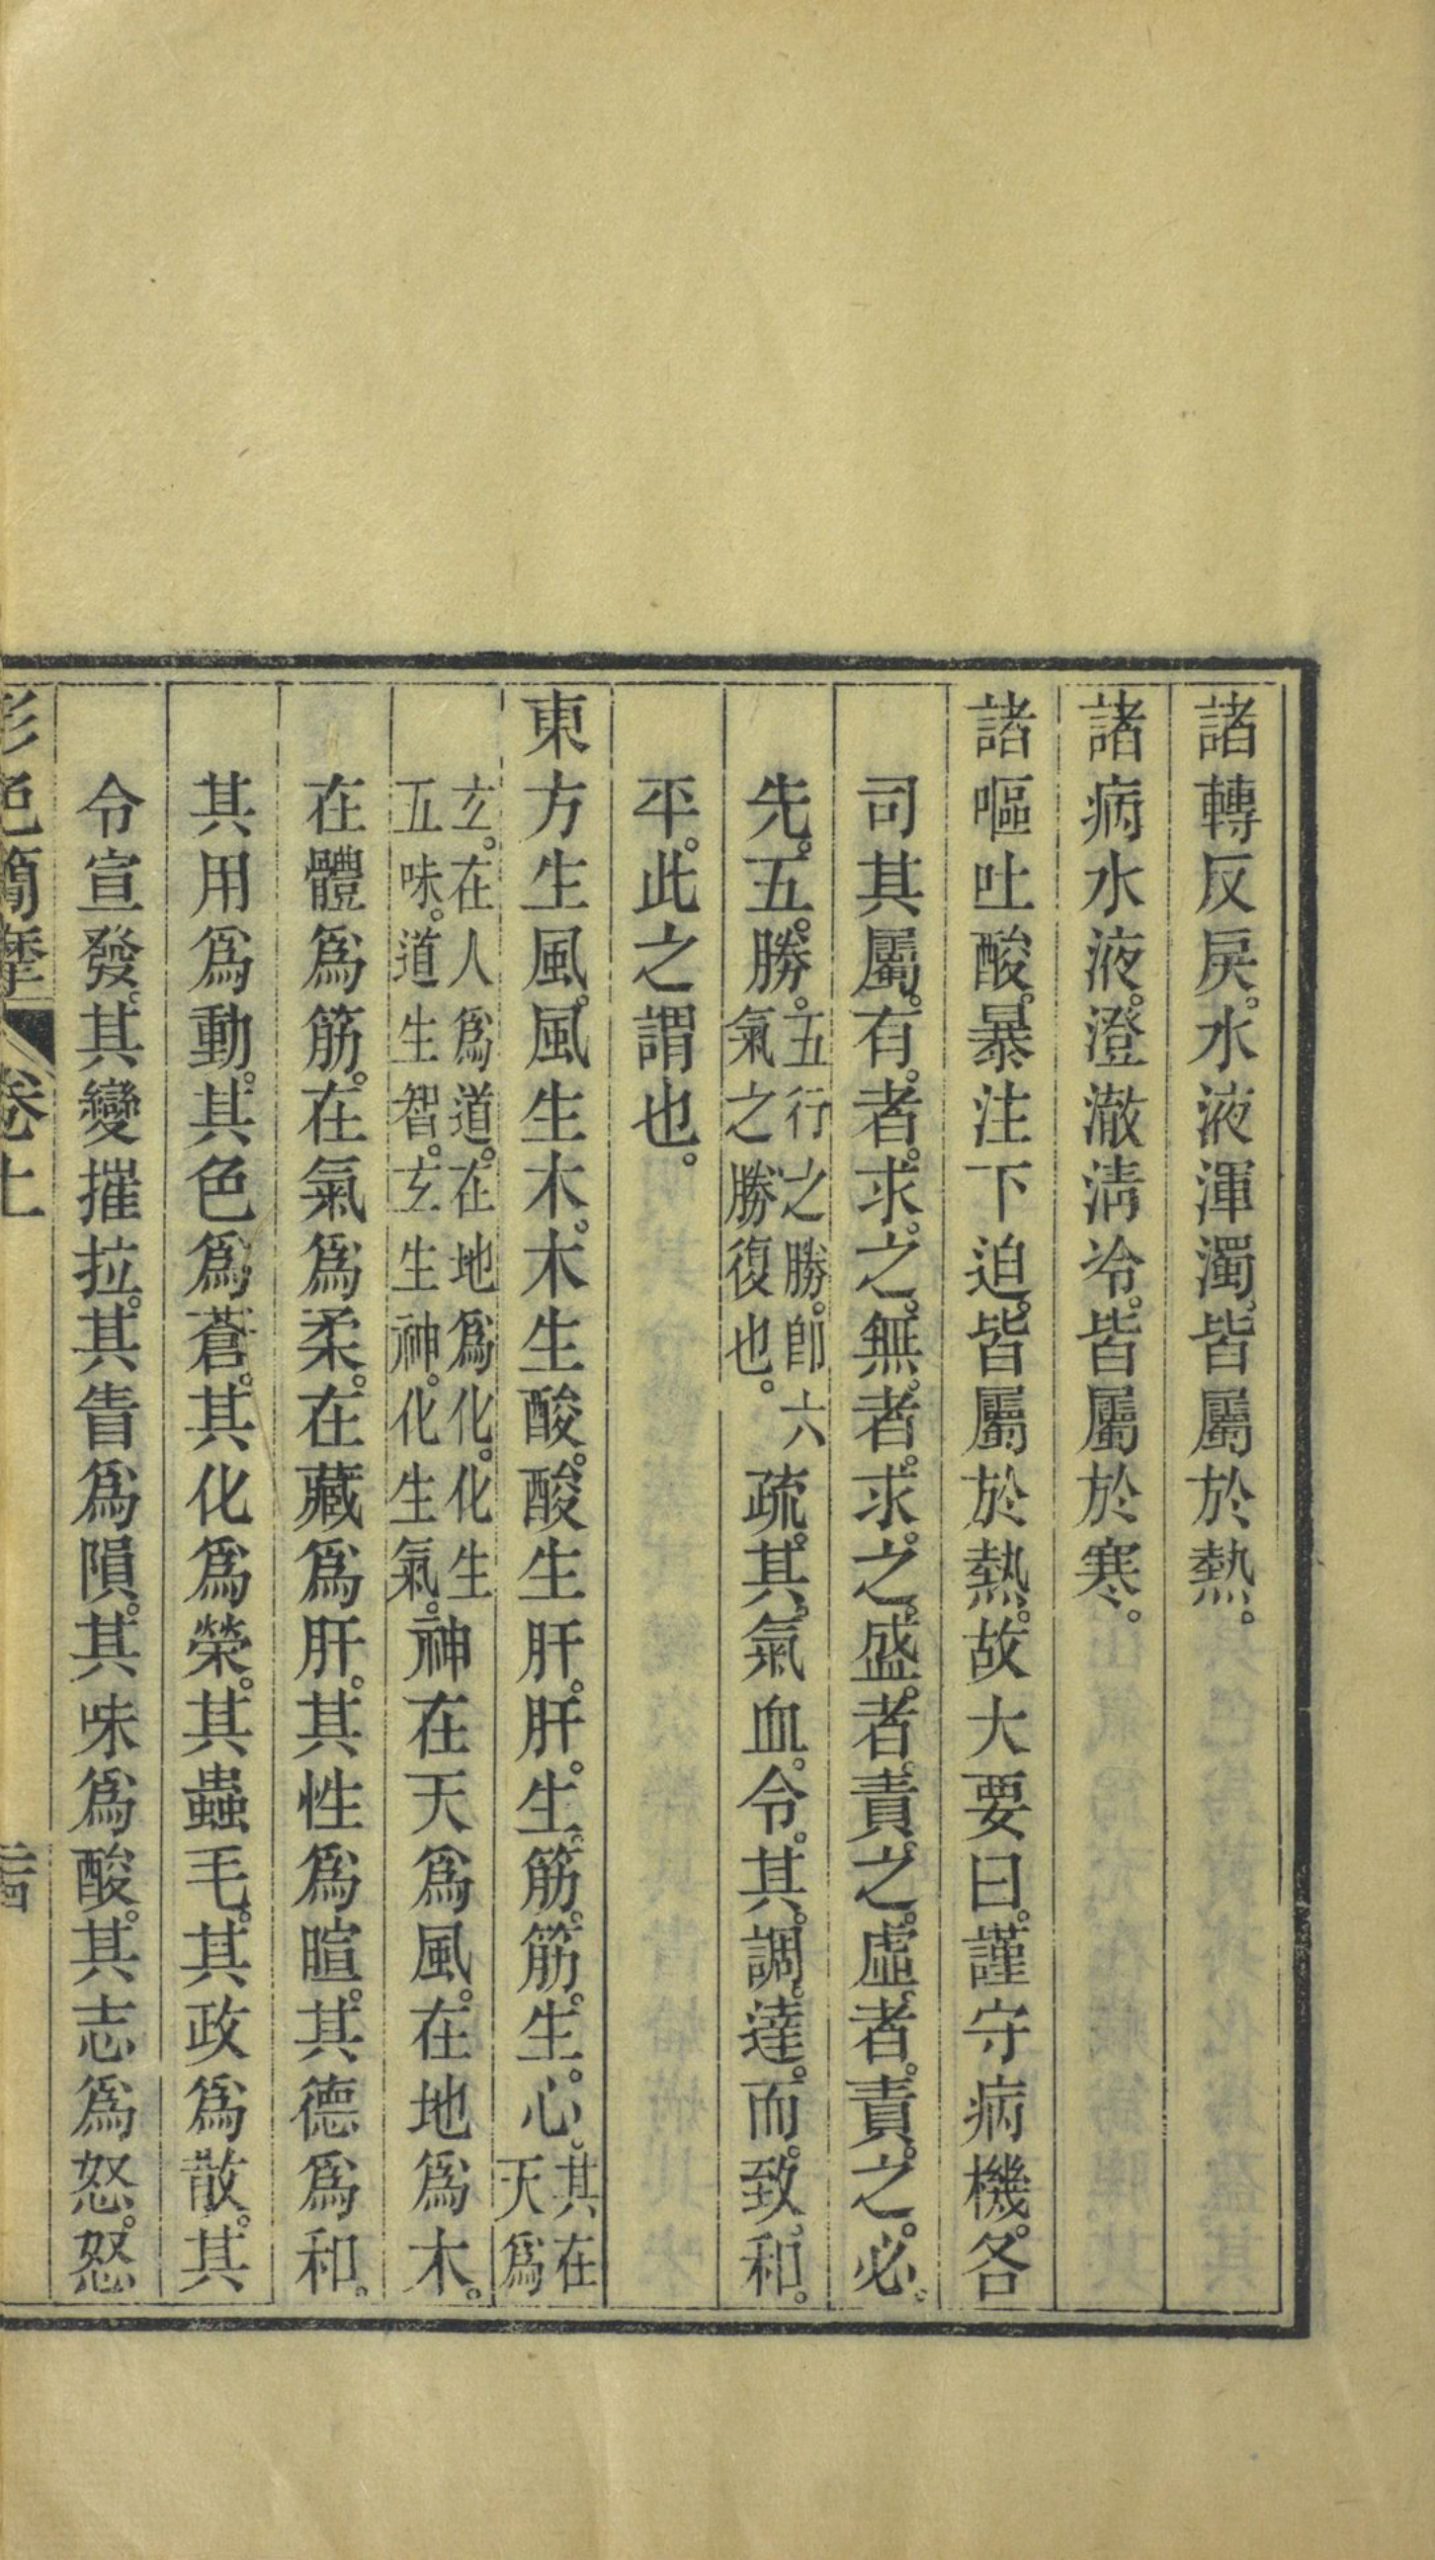 諸轉反戾。水液渾濁。皆屬於熱。
諸病水液。澄澈清冷。皆屬於寒。
諸嘔吐酸。暴注下迫。皆屬於熱。故大要曰。謹守病機。各
司其屬。有。者。求。之。無。者。求。之。盛。者。責。之。虛。者。責。之。必。
先。五。勝。五行之勝。卽六氣之勝復也。疏。其。氣血。令。其。調。達。而。致。和。
平。此之謂也。
東方生風。風生木。木生酸。酸生肝。肝。生。筋。筋。生。心。其在天爲
玄。在人爲道。在地爲化。化生五味。道生智。玄生神。化生氣。神在天爲風。在地爲木。
在體爲筋。在氣爲柔。在藏爲肝。其性爲暄。其德爲和。
其用爲動。其色爲蒼。其化爲榮。其蟲毛。其政爲散。其
令宣發。其變摧拉。其眚爲隕。其味爲酸。其志爲怒。怒
形色簡摩 卷上